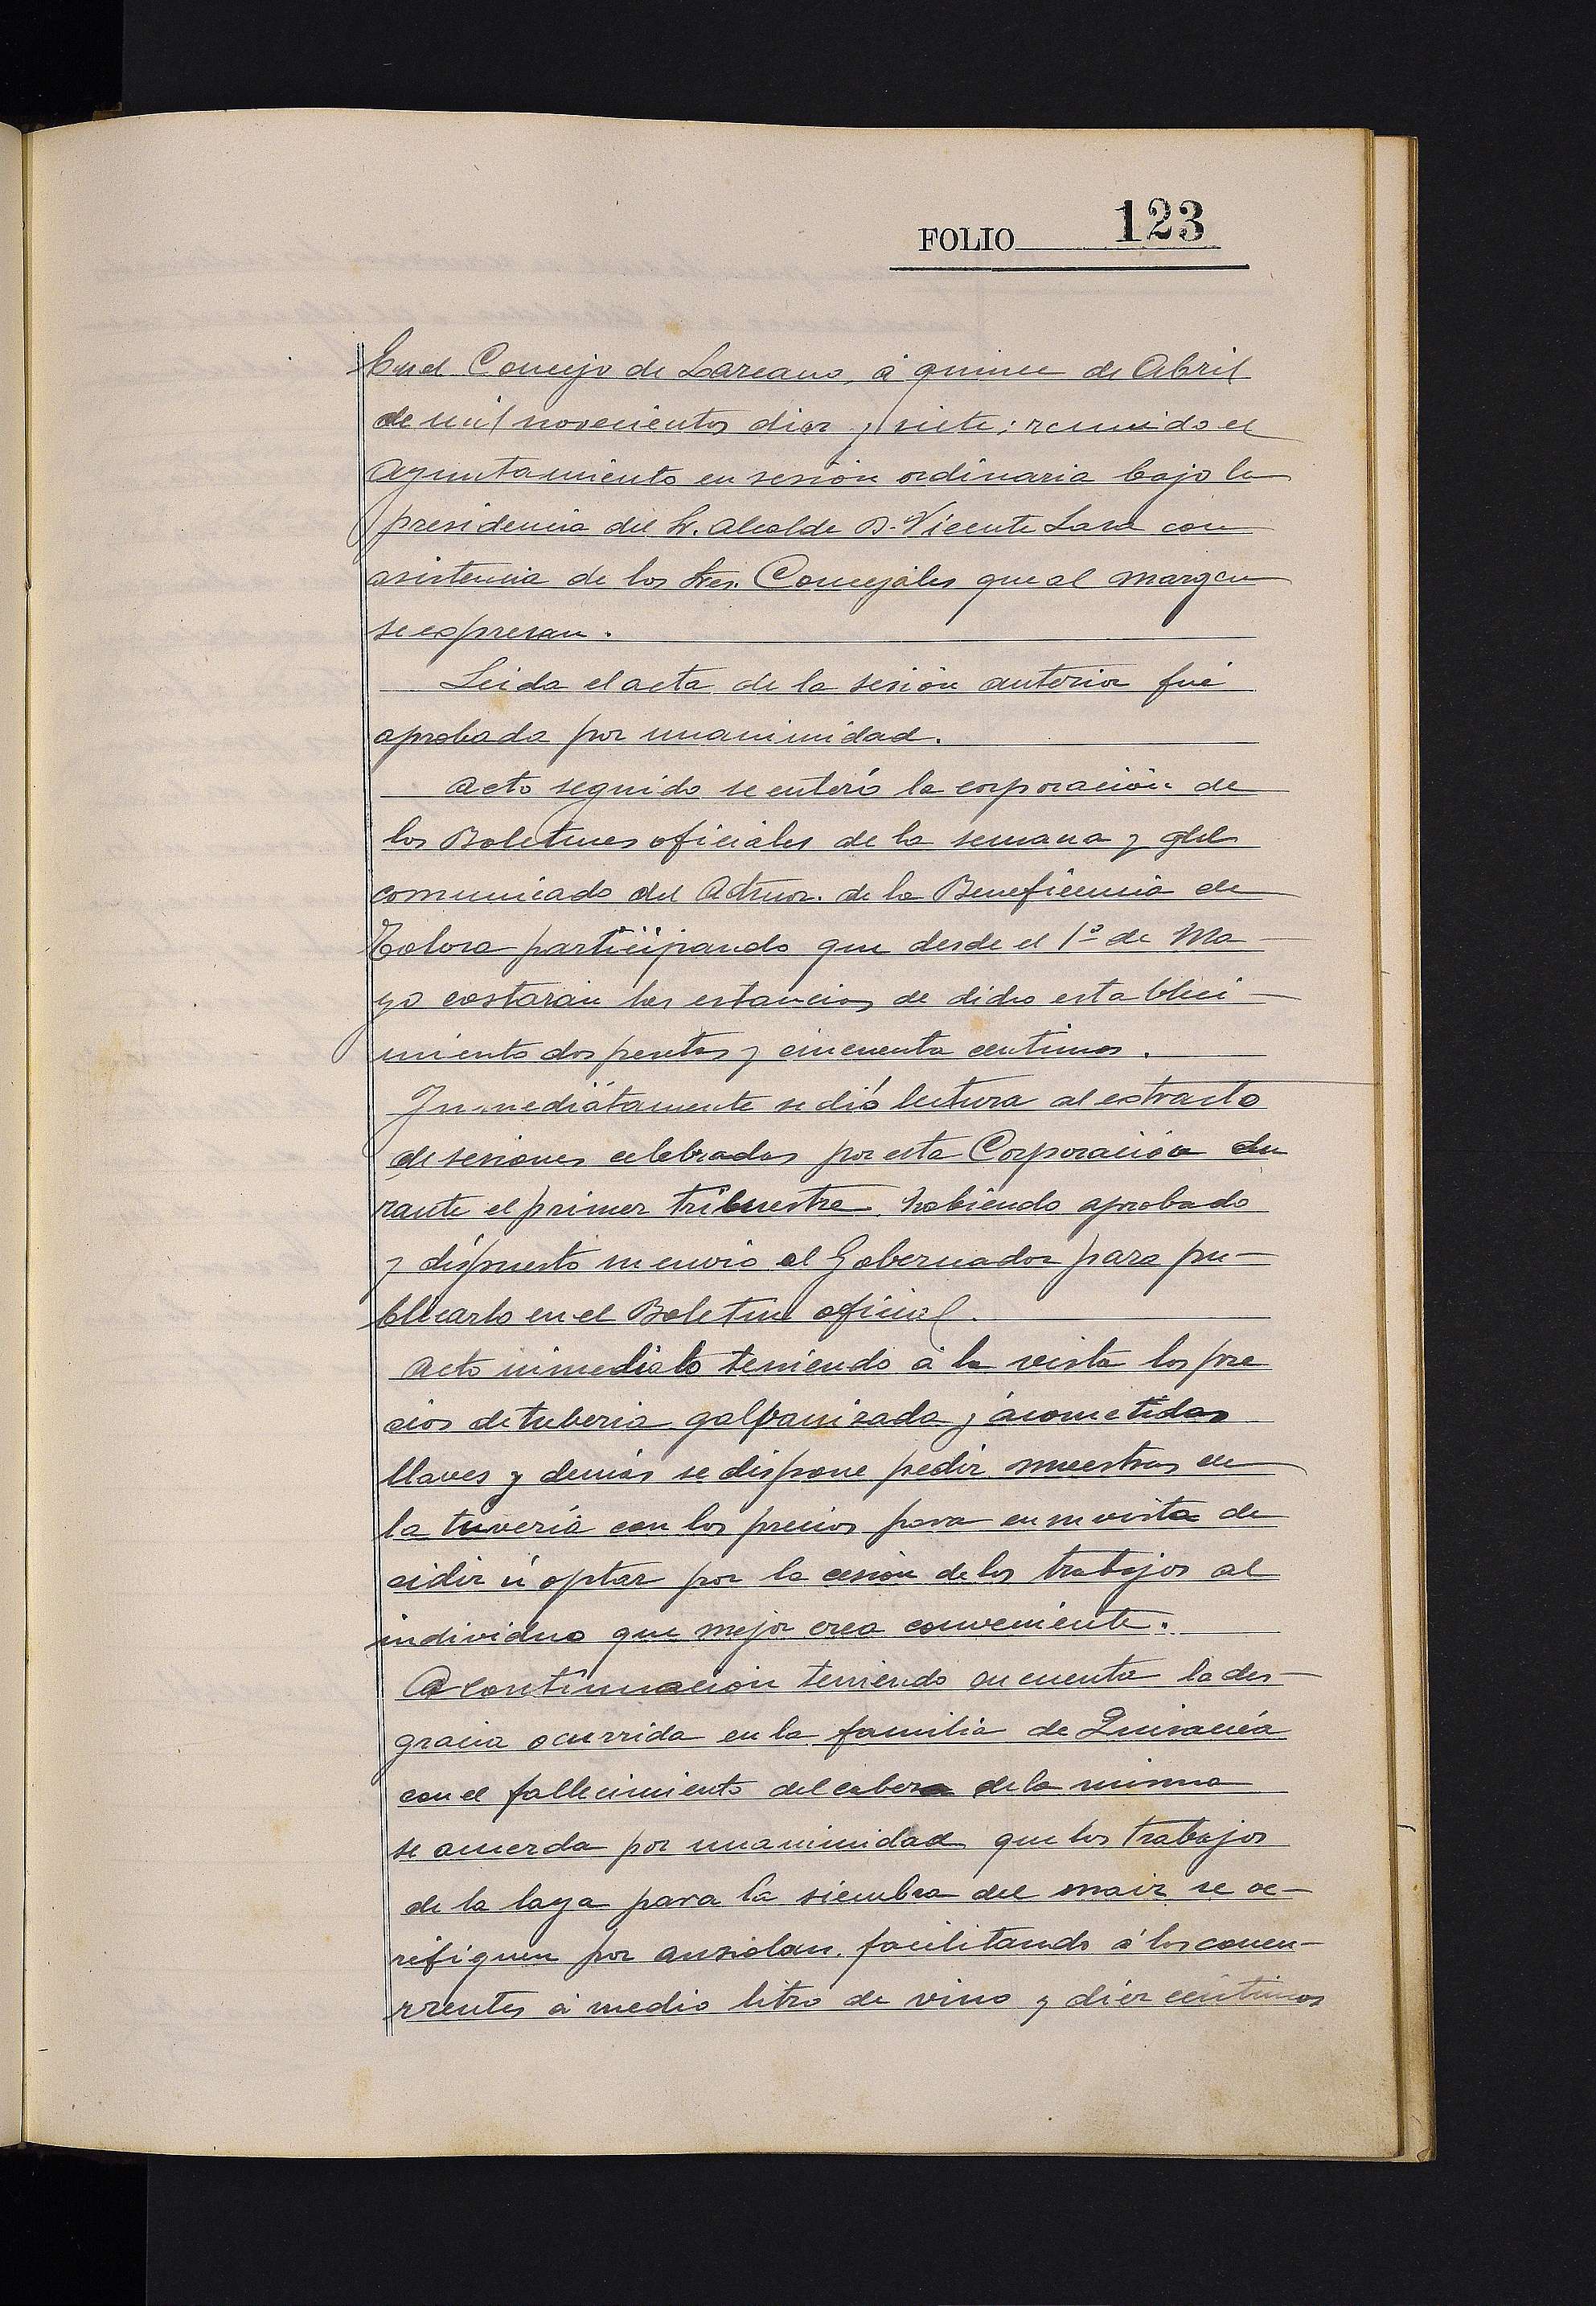 FOLIO 123
En el Concejo de Lazcano, á quince de Abril
de mil novecientos diez y siete; reunido el
Ayuntamiento en sesión ordinaria bajo la
presidencia del Sr. Alcalde D. Vicente Lasa con
asistencia de los Sres. Concejales que al margen
se expresan.
Leida el acta de la sesión anterior fué
aprobada por unanimidad.
Acto seguido se enteró la corporación de
los Boletines oficiales de la semana y del
comunicado del Admor. de la Beneficencia de
Tolosa participando que desde el 1º de Ma-
yo costarán las estancias de dicho estableci-
miento dos pesetas y cincuenta centimos.
Inmediatamente se dió lectura al extracto
de sesiones celebradas por esta Corporación du
rante el primer trimestre, habiendo aprobado
y dispuesto su envio al Gobernador para pu-
blicarlo en el Boletin oficial.
Acto inmediato teniendo á la vista los pre
cios de tuberia galvanizada y ácometidas
llaves y demás se dispone pedir muestras de
la tuveria con los precios para en su vista de
cidir ú optar por la cesión de los trabajos al
individuo que mejor crea conveniente.
A continuación teniendo en cuenta la des-
gracia ocurrida en la familia de
con el fallecimiento del cabeza de la misma
se acuerda por unanimidad que los trabajos
de la laya para la siembra del maiz se ve-
rifiquen por auzolan, facilitando á los concu-
rrentes á medio litro de vino y diez céntimos